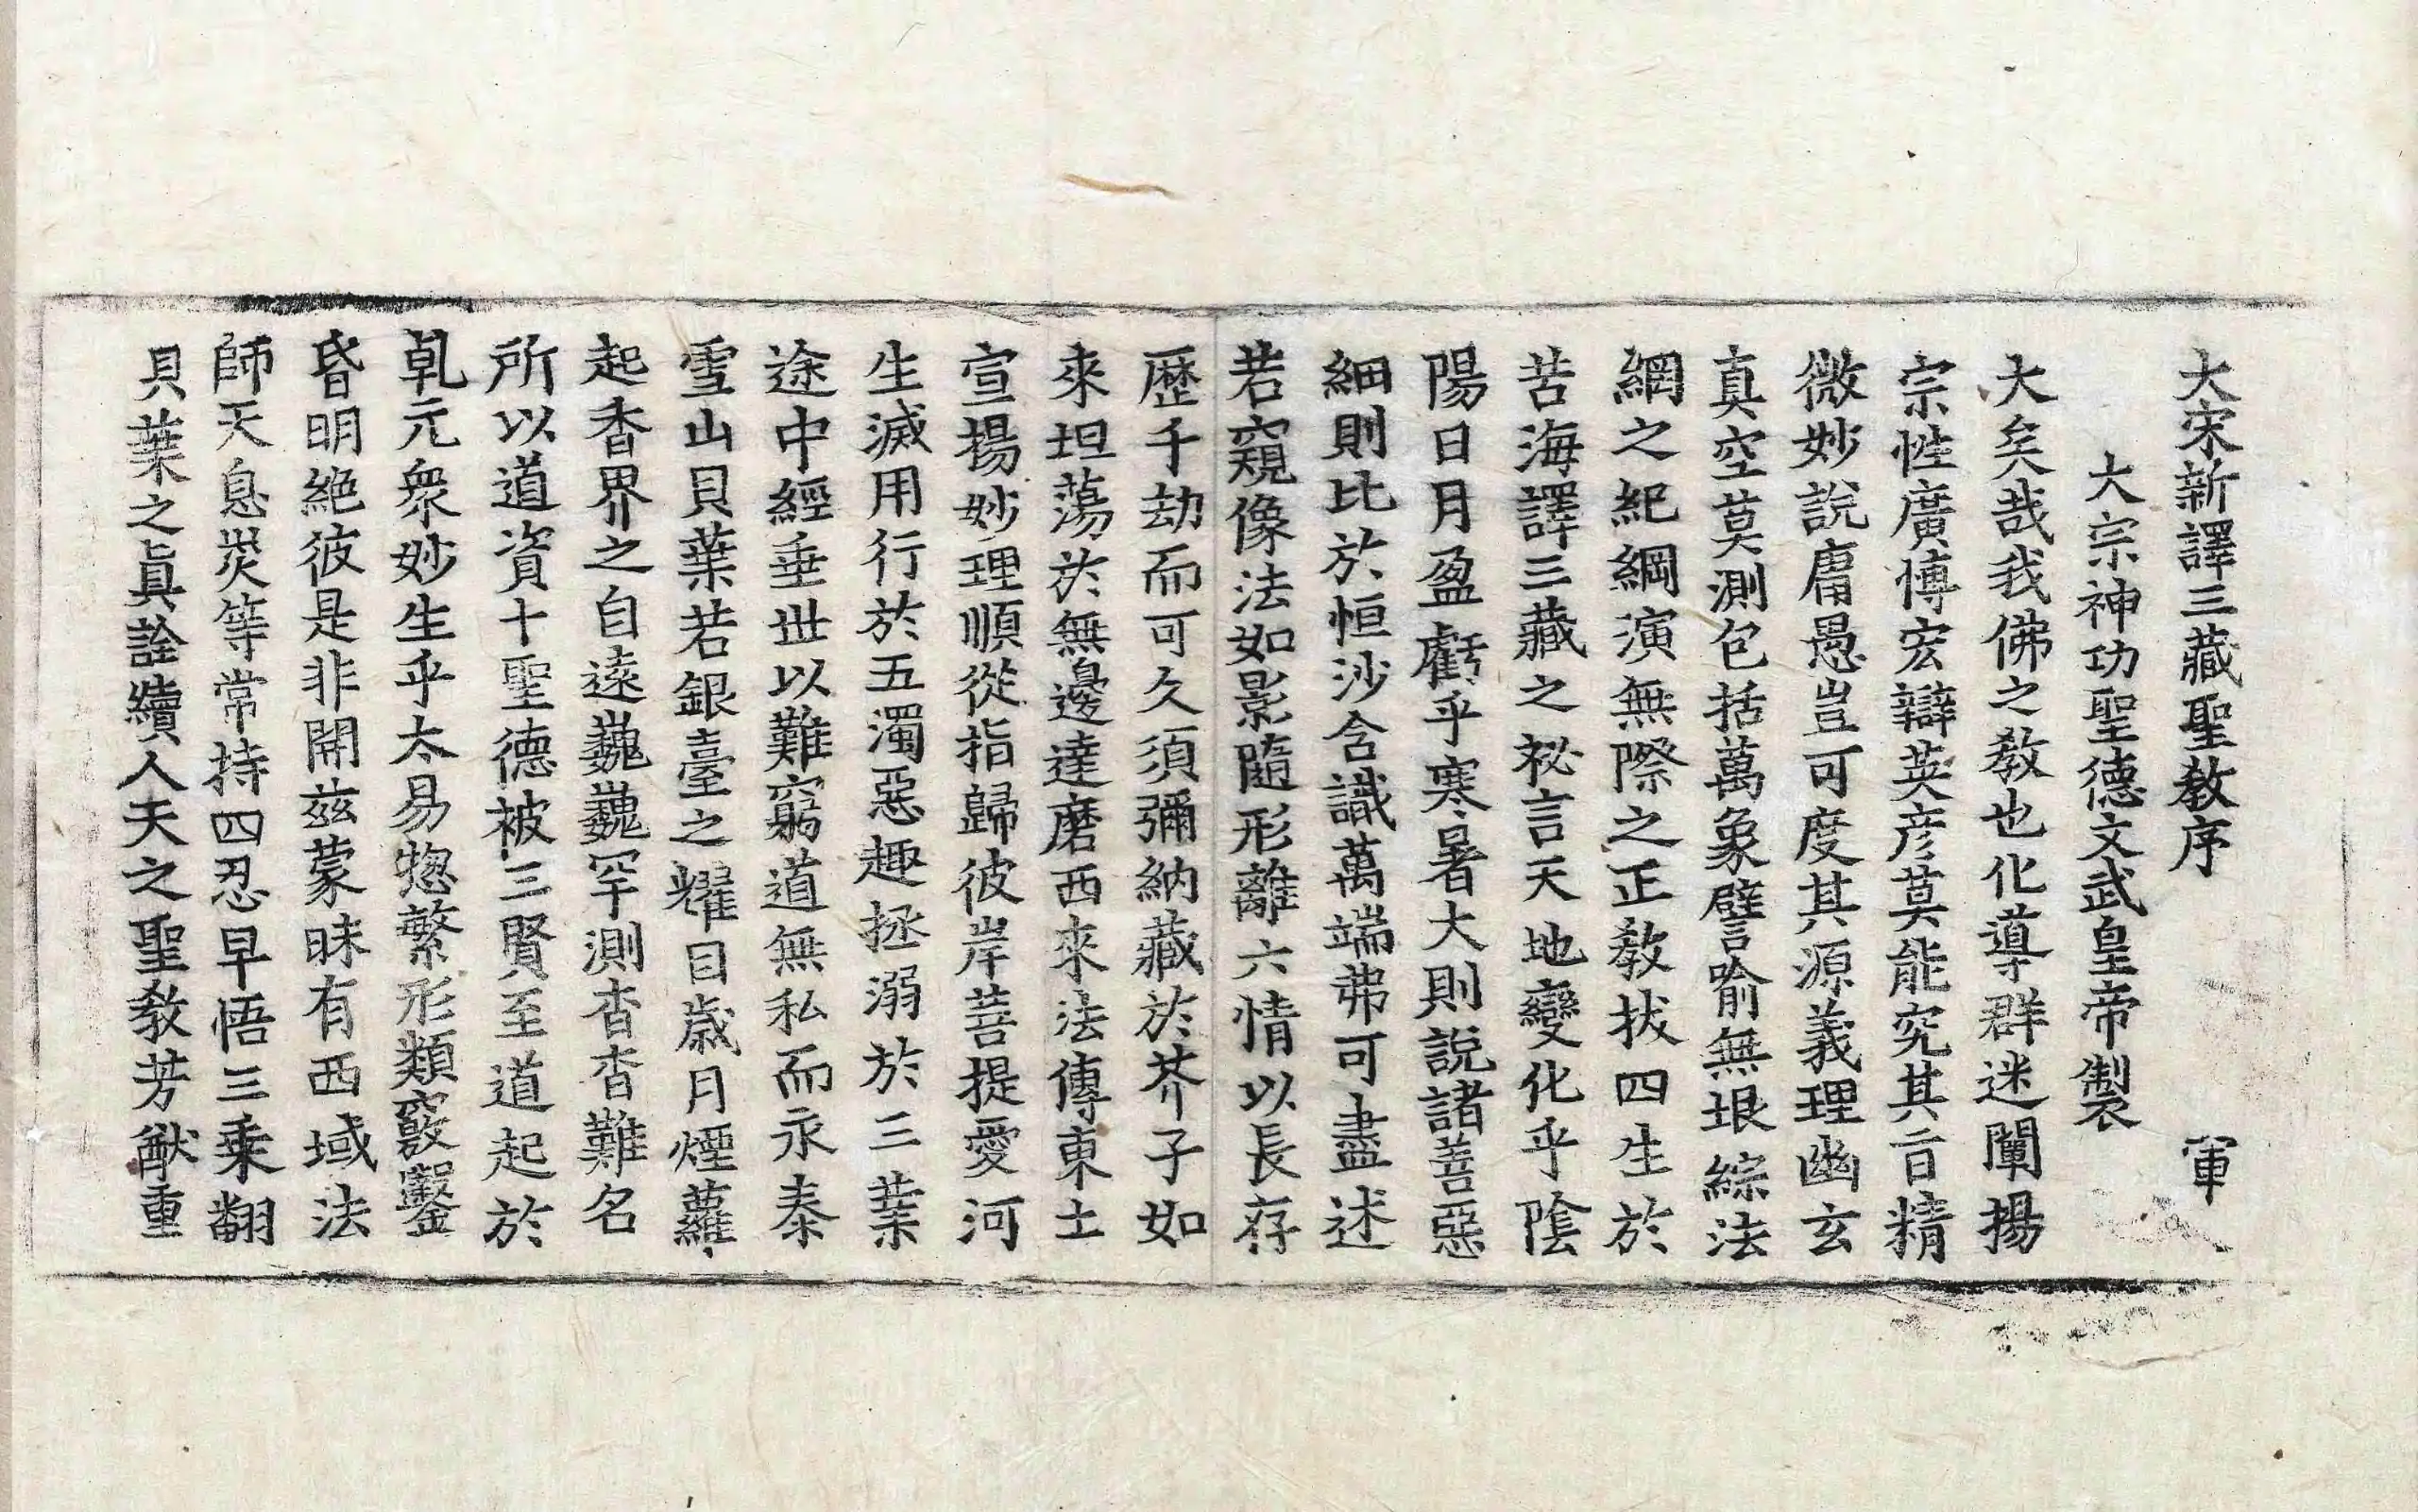 大宋新譯三藏聖教序 軍
大宗神功聖德文武皇帝製
大矣哉我佛之教也化導群迷闡揚
宗性廣博宏辯英彥莫能究其旨精
微妙說庸愚豈可度其源義理幽玄
真空莫測包括萬象譬喻無垠綜法
網之紀綱演無際之正教拔四生於
苦海譯三藏之祕言天地變化乎陰
陽日月盈虧乎寒暑大則說諸善惡
細則比於恒沙含識萬端弗可盡述
若窺像法如影隨形離六情以長存
歷千劫而可久須彌納藏於芥子如
來坦蕩於無邊達磨西來法傳東土
宣揚妙理順從指歸彼岸菩提愛河
生滅用行於五濁惡趣拯溺於三業
途中經垂世以難窮道無私而永泰
雪山貝葉若銀臺之耀目歲月煙蘿
起香界之自遠巍巍罕測杳杳難名
所以道資十聖德被三賢至道起於
乹元衆妙生乎太易惣繁形類竅鑿
昏明絕彼是非開茲蒙昧有西域法
師天息災等常持四忍早悟三乘翻
貝葉之真詮續人天之聖教芳猷重